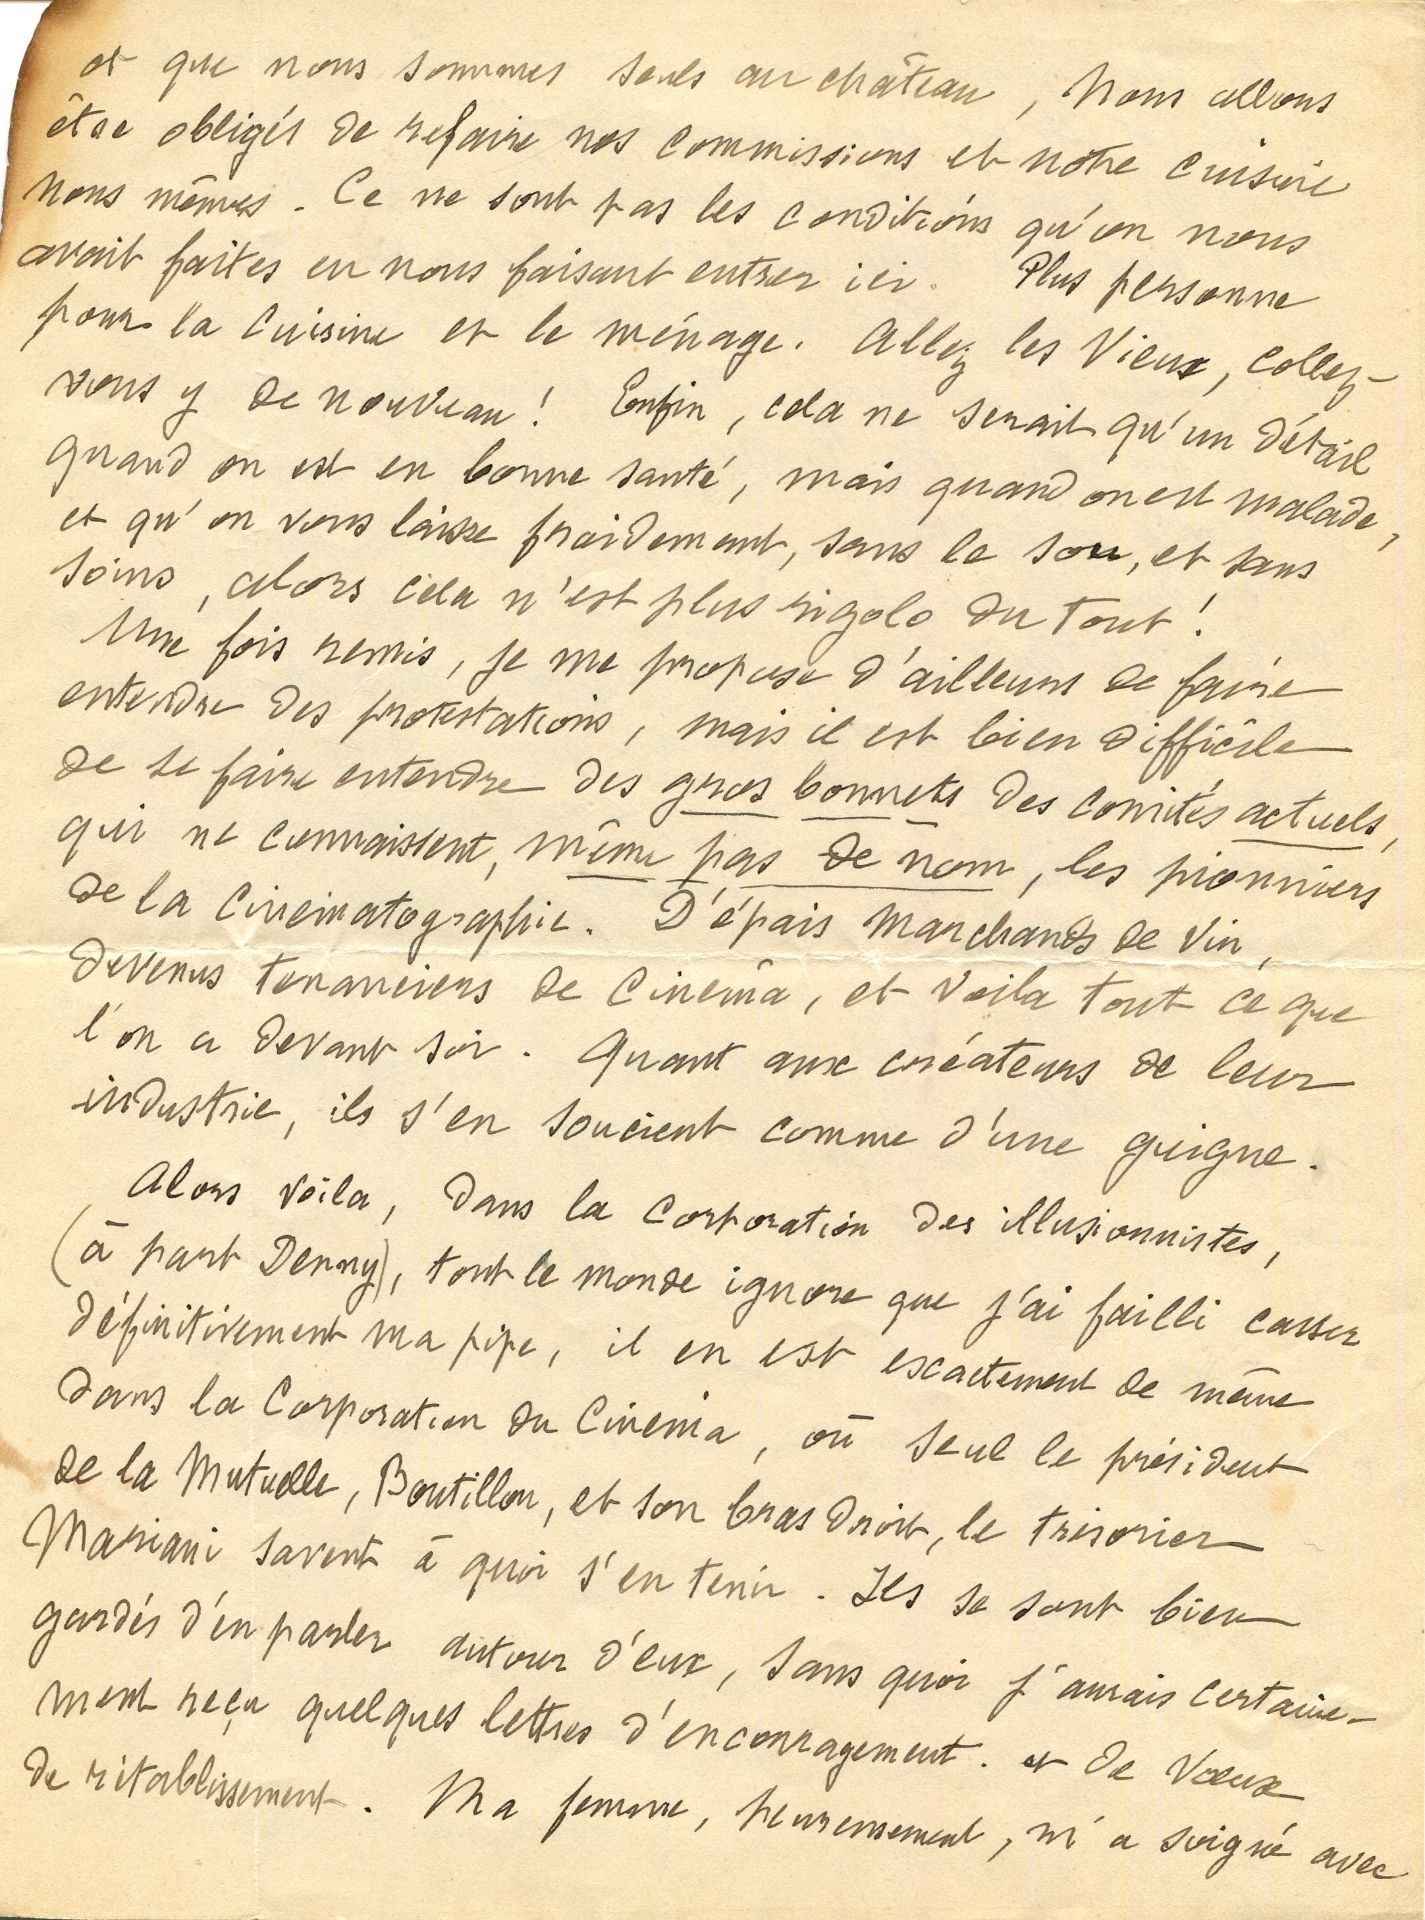 et que nous sommes seuls au château, Nous allons
être obligés de refaire nos commissions et notre cuisine
nous mêmes. Ce ne sont pas les conditions qu'on nous
avait faites en nous faisant entrer ici. Plus personne
pour la cuisine et le ménage. Allez les Vieux, collez-
vous y de nouveau! Enfin, cela ne serait qu'un détail
quand on est en bonne santé, mais quand on est malade,
et qu'on vous laisse froidement, sans le sou, et sans
soins, alors cela n'est plus rigolo du tout!
Une fois remis, je me propose d'ailleurs de faire
entendre des protestations, mais il est bien difficile
de se faire entendre des gros bonnets des comités actuels,
qui ne connaissent, même pas de nom, les pionniers
de la Cinématographie. D'épais Marchands de Vin,
devenus tenanciers de Cinéma, et voila tout ce que
l'on a devant soi. Quant aux créateurs de leur
industrie, ils s'en soucient comme d'une guigne.
Alors voila, dans la Corporation des illusionnistes,
(à part Denny), tout le monde ignore que j'ai failli casser
définitivement ma pipe, il en est exactement de même
dans la Corporation du Cinéma, où seul le président
de la Mutuelle, Boutillon, et son bras droit, le trésorier
Mariani savent à quoi s'en tenir. Ils se sont bien
gardés d'en parler autour d'eux, sans quoi j'aurais certaine-
ment reçu quelques lettres d'encouragement. et de Vœux
de rétablissement. Ma femme, heureusement, m'a soigné avec